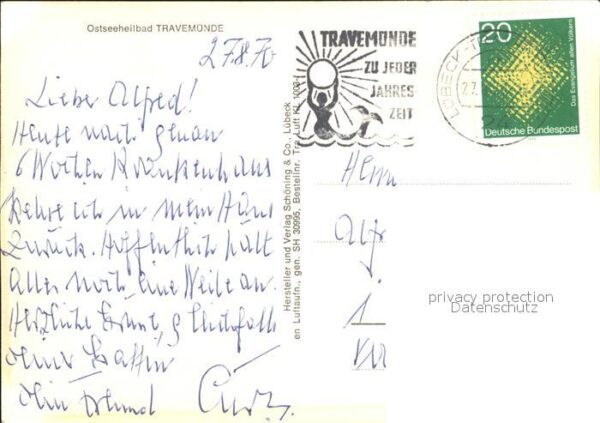 Ostseeheilbad TRAVEMÜNDE
27.8.70
Lieber Alfred!
Heute nach genau
6 Wochen Krankenhaus
kehre ich in mein Haus
zurück. Hoffentlich hält
alles noch eine Weile an.
Herzliche Grüße
Deiner Gattin
Dein Freund Curt
Hersteller und Verlag Schöning & Co., Lübeck
en Luftaufn., gen. SH 30995, Bestellnr. Tra Luft KL 1009
TRAVEMÜNDE
ZU JEDER
JAHRES
ZEIT
LÜBECK-T
27.
20
Das Evangelium allen Völkern
Deutsche Bundespost
Herrn
Alfr
privacy protection
Datenschutz